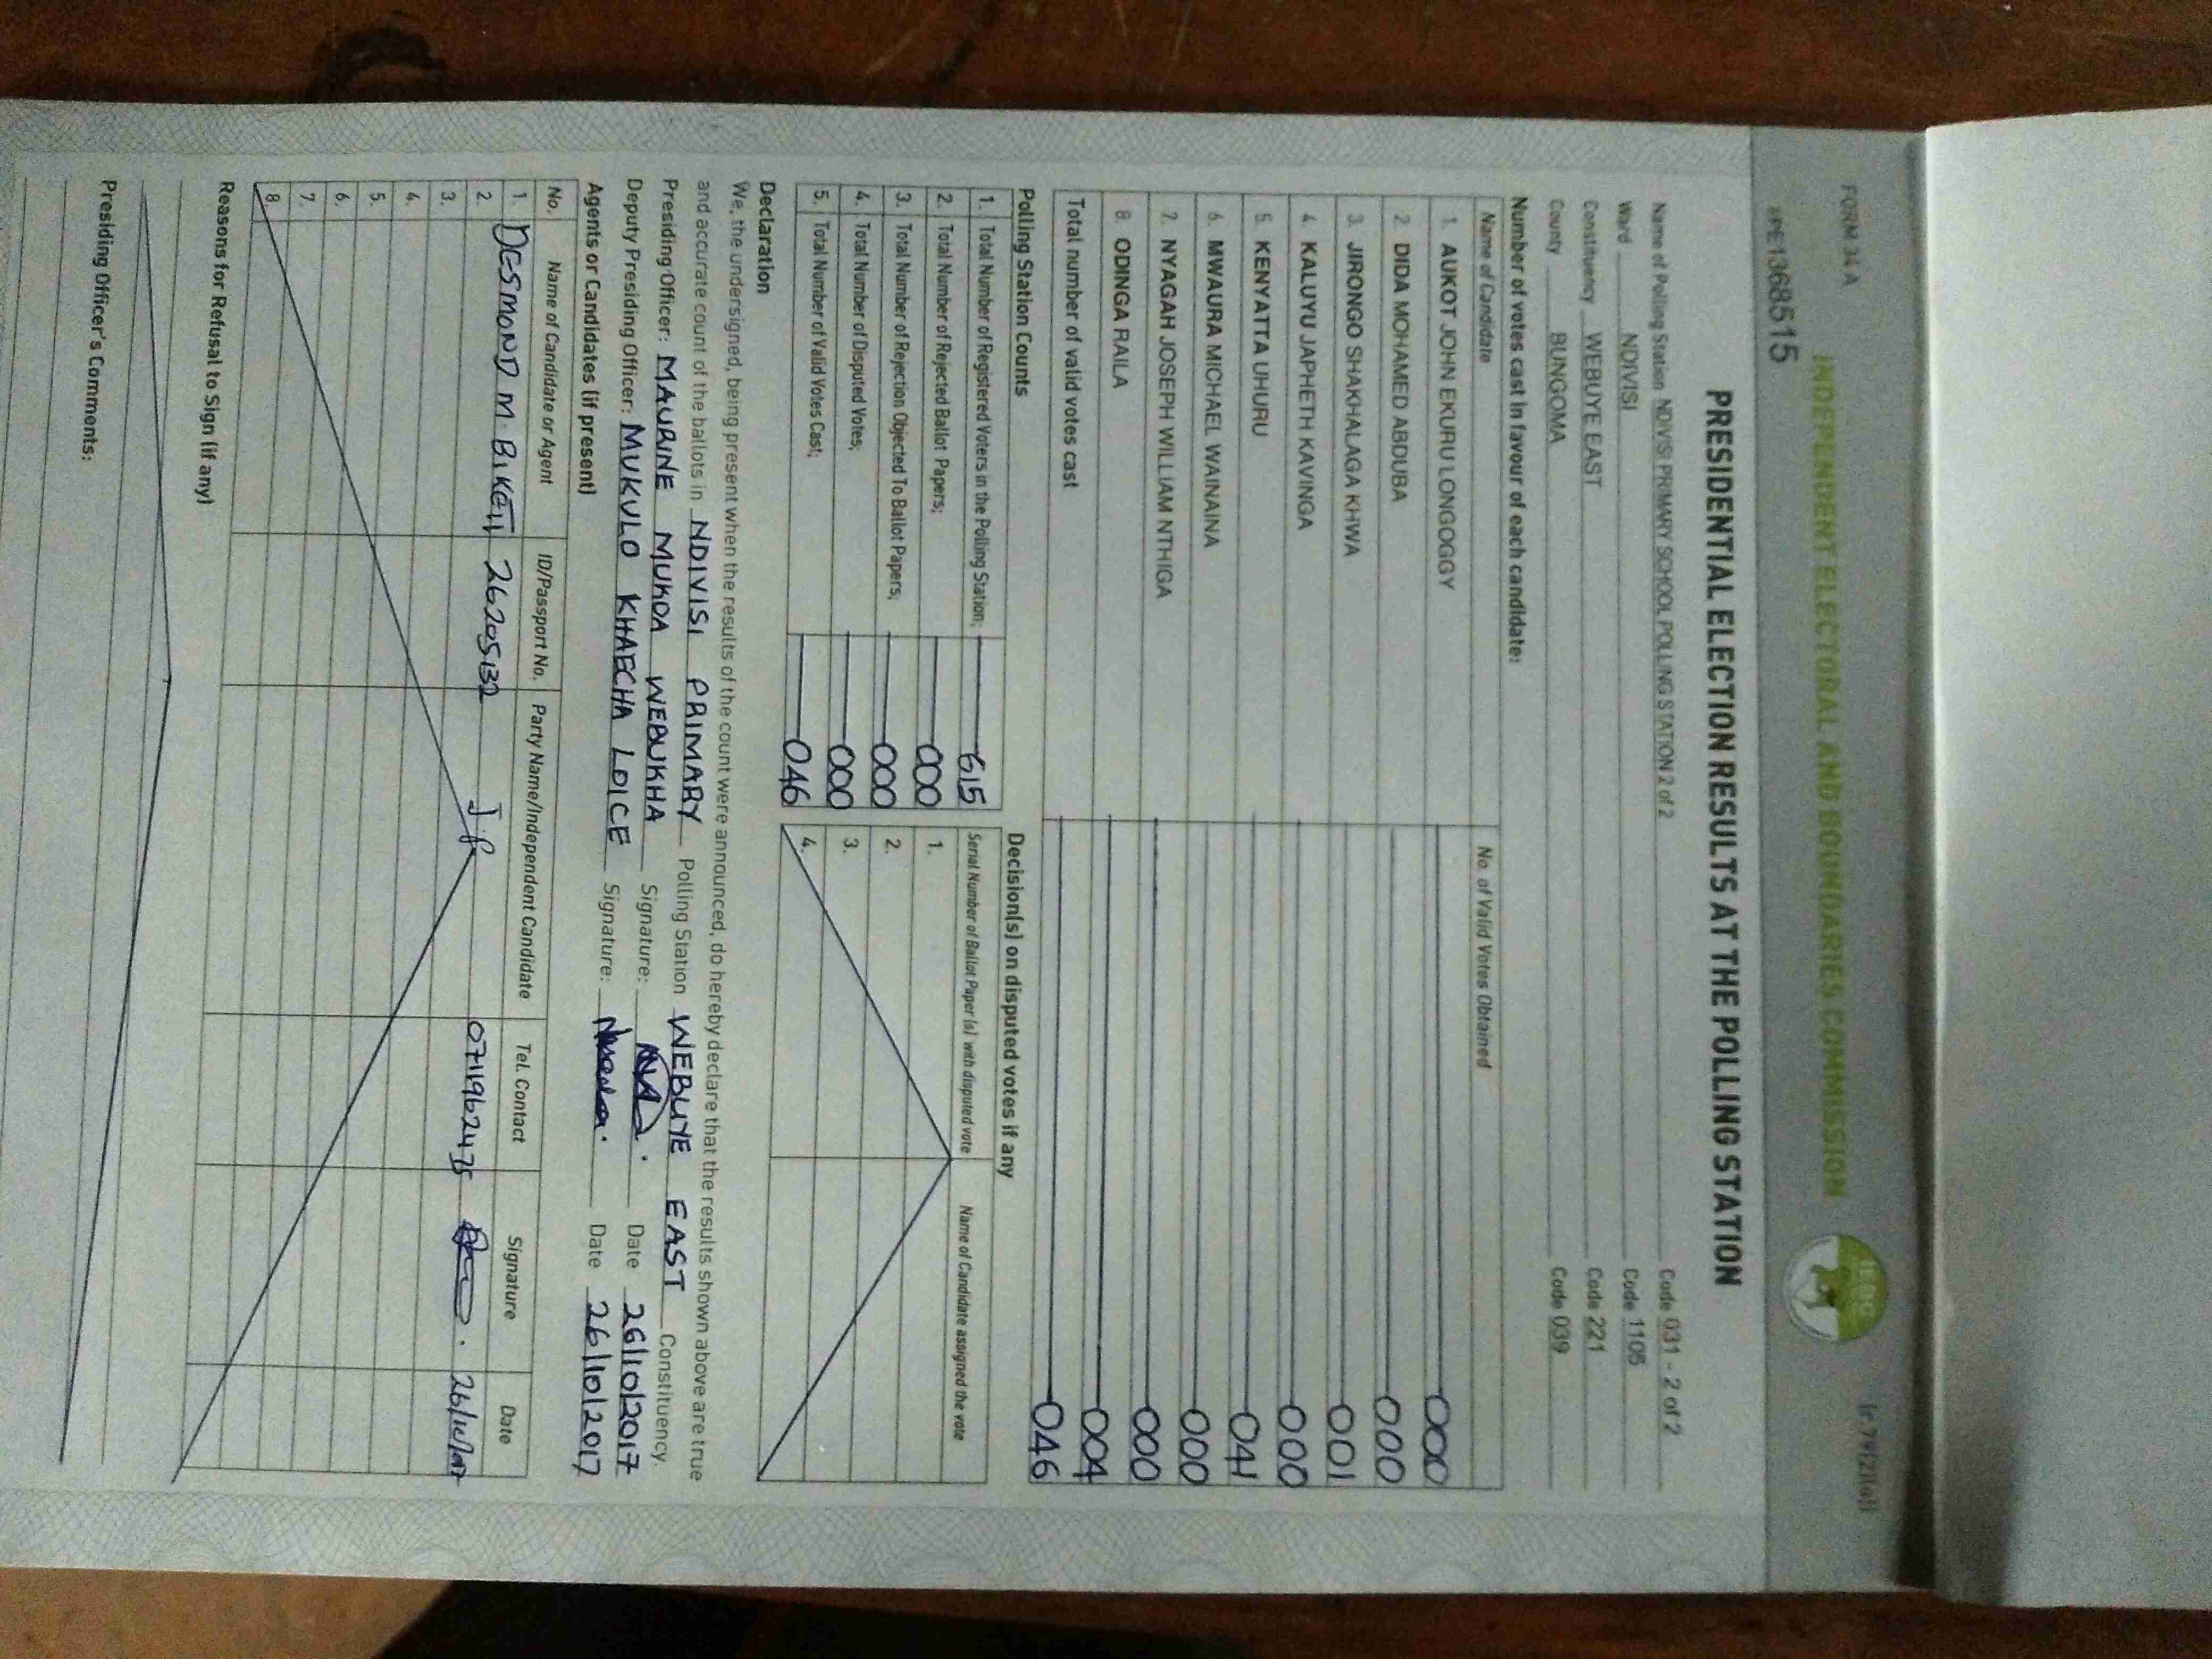 FORM 34 A
INDEPENDENT ELECTORAL AND BOUNDARIES COMMISSION
IEBC
PE1368515
PRESIDENTIAL ELECTION RESULTS AT THE POLLING STATION
Name of Polling Station NDIVISI PRIMARY SCHOOL POLLING STATION 2 of 2 Code 031 - 2 of 2
Ward NDIVISI Code 1106
Constituency WEBUYE EAST Code 221
County BUNGOMA Code 039
Number of votes cast in favour of each candidate:
Name of Candidate No. of Valid Votes Obtained
1. AUKOT JOHN EKURU LONGOGGY 000
2. DIDA MOHAMED ABDUBA 000
3. JIRONGO SHAKHALAGA KHWA 001
4. KALUYU JAPHETH KAVINGA 000
5. KENYATTA UHURU 041
6. MWAURA MICHAEL WAINAINA 000
7. NYAGAH JOSEPH WILLIAM NTHIGA 000
8. ODINGA RAILA 004
Total number of valid votes cast 046
Polling Station Counts
1. Total Number of Registered Voters in the Polling Station; 615
2. Total Number of Rejected Ballot Papers; 000
3. Total Number of Rejection Objected To Ballot Papers; 000
4. Total Number of Disputed Votes; 000
5. Total Number of Valid Votes Cast; 046
Decision(s) on disputed votes if any
Serial Number of Ballot Paper (s) with disputed vote Name of Candidate assigned the vote
1.
2.
3.
4.
Declaration
We, the undersigned, being present when the results of the count were announced, do hereby declare that the results shown above are true
and accurate count of the ballots in NDIVISI PRIMARY Polling Station WEBUYE EAST Constituency.
Presiding Officer: MAURINE MUKOA WEBUKHA Signature: Date 26/10/2017
Deputy Presiding Officer: MUKULO KHAECHA LOICE Signature: Date 26/10/2017
Agents or Candidates (if present)
No. Name of Candidate or Agent ID/Passport No. Party Name/Independent Candidate Tel. Contact Signature Date
1. DESMOND M. BIKETI 26205132 J.P 0711962475 26/10/017
2.
3.
4.
5.
6.
7.
8.
Reasons for Refusal to Sign (if any)
Presiding Officer's Comments: